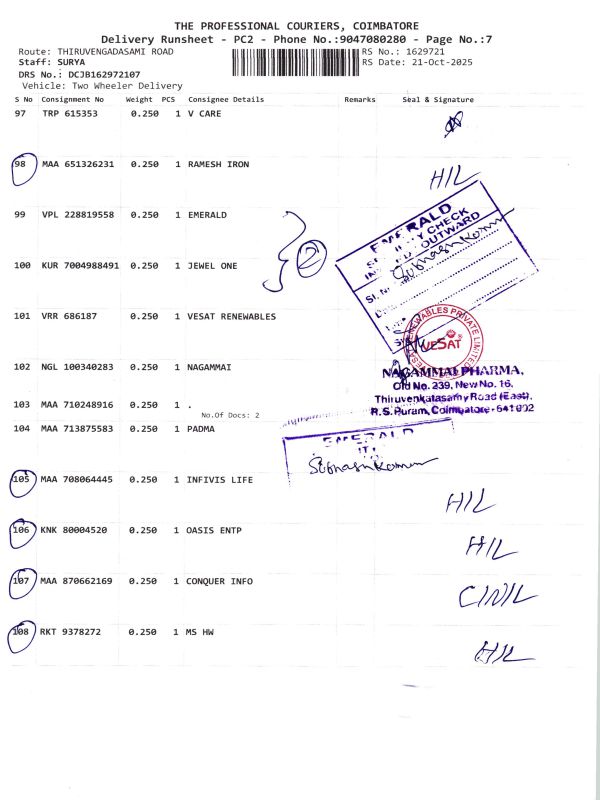 THE PROFESSIONAL COURIERS, COIMBATORE
Delivery Runsheet - PC2 - Phone No.:9047080280 - Page No.:7
Route: THIRUVENGADASAMI ROAD RS No.: 1629721
Staff: SURYA RS Date: 21-Oct-2025
DRS No.: DCJB162972107
Vehicle: Two Wheeler Delivery
S No Consignment No Weight PCS Consignee Details Remarks Seal & Signature
97 TRP 615353 0.250 1 V CARE
98 MAA 651326231 0.250 1 RAMESH IRON H/L
99 VPL 228819558 0.250 1 EMERALD
EMERALD
SECURITY CHECK
OUTWARD
Subhash Kumar
100 KUR 7004988491 0.250 1 JEWEL ONE
2
101 VRR 686187 0.250 1 VESAT RENEWABLES
VESAT RENEWABLES PRIVATE LIMITED
VESAT
102 NGL 100340283 0.250 1 NAGAMMAI
NAGAMMAI PHARMA,
Old No. 239, New No. 16,
Thiruvenkatasamy Road (East),
R.S.Puram, Coimbatore-641 002
103 MAA 710248916 0.250 1 .
No.Of Docs: 2
104 MAA 713875583 0.250 1 PADMA
EMERALD
Subhash Kumar
105 MAA 708064445 0.250 1 INFIVIS LIFE H/L
106 KNK 80004520 0.250 1 OASIS ENTP H/L
107 MAA 870662169 0.250 1 CONQUER INFO C/N/L
108 RKT 9378272 0.250 1 MS HW H/L